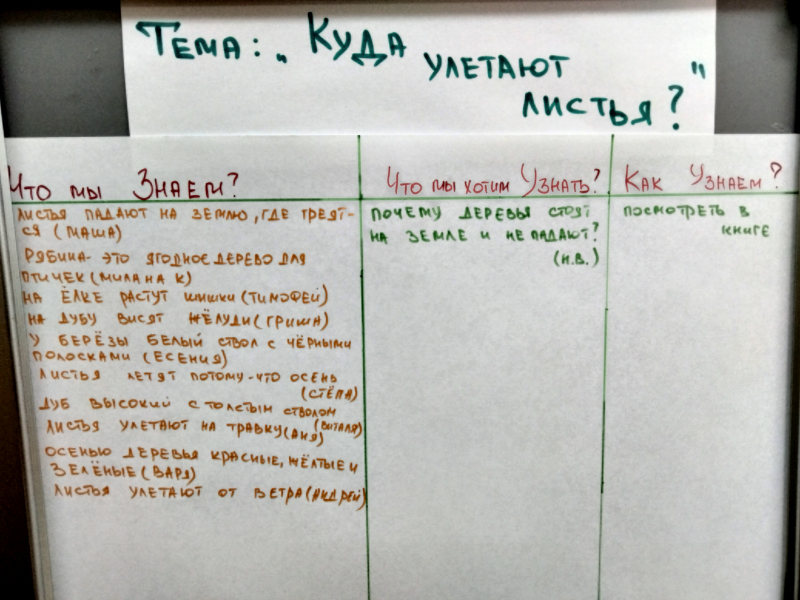 Тема: „ Куда
улетают "
листья?
Что мы Знаем?
листья падают на землю, где греят-
ся (Маша)
Рябина- это ягодное дерево для
птичек (Милана К)
на ёлке растут шишки (Тимофей)
на дубу висят жёлуди (Гриша)
у берёзы белый ствол с чёрными
полосками (Есения)
Листья летят потому-что осень
(Стёпа)
дуб высокий с толстым стволом
(Виталя)
листья улетают на травку (Аня)
осенью деревья красные, жёлтые и
зелёные (Варя)
листья улетают от ветра (Андрей)
Что мы хотим Узнать?
почему деревья стоят
на земле и не падают?
(Н.В.)
Как Узнаем?
посмотреть в
книге